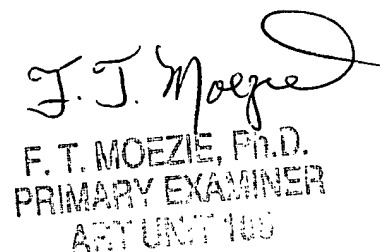 F. T. Moezie
F. T. MOEZIE, Ph.D.
PRIMARY EXAMINER
ART UNIT